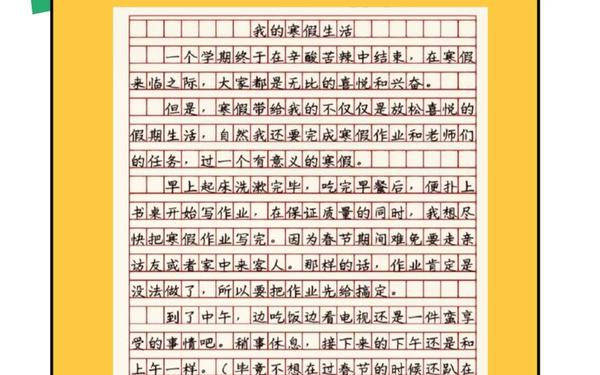 我的寒假生活
一个学期终于在辛酸苦辣中结束，在寒假
来临之际，大家都是无比的喜悦和兴奋。
但是，寒假带给我的不仅仅是放松喜悦的
假期生活，自然我还要完成寒假作业和老师们
的任务，过一个有意义的寒假。
早上起床洗漱完毕，吃完早餐后，便扑上
书桌开始写作业，在保证质量的同时，我想尽
快把寒假作业写完。因为春节期间难免要走亲
访友或者家中来客人。那样的话，作业肯定是
没法做了，所以要把作业先给搞定。
到了中午，边吃饭边看电视还是一件蛮享
受的事情吧。稍事休息，接下来的下午还是和
上午一样。（毕竟不想在过春节的时候还趴在